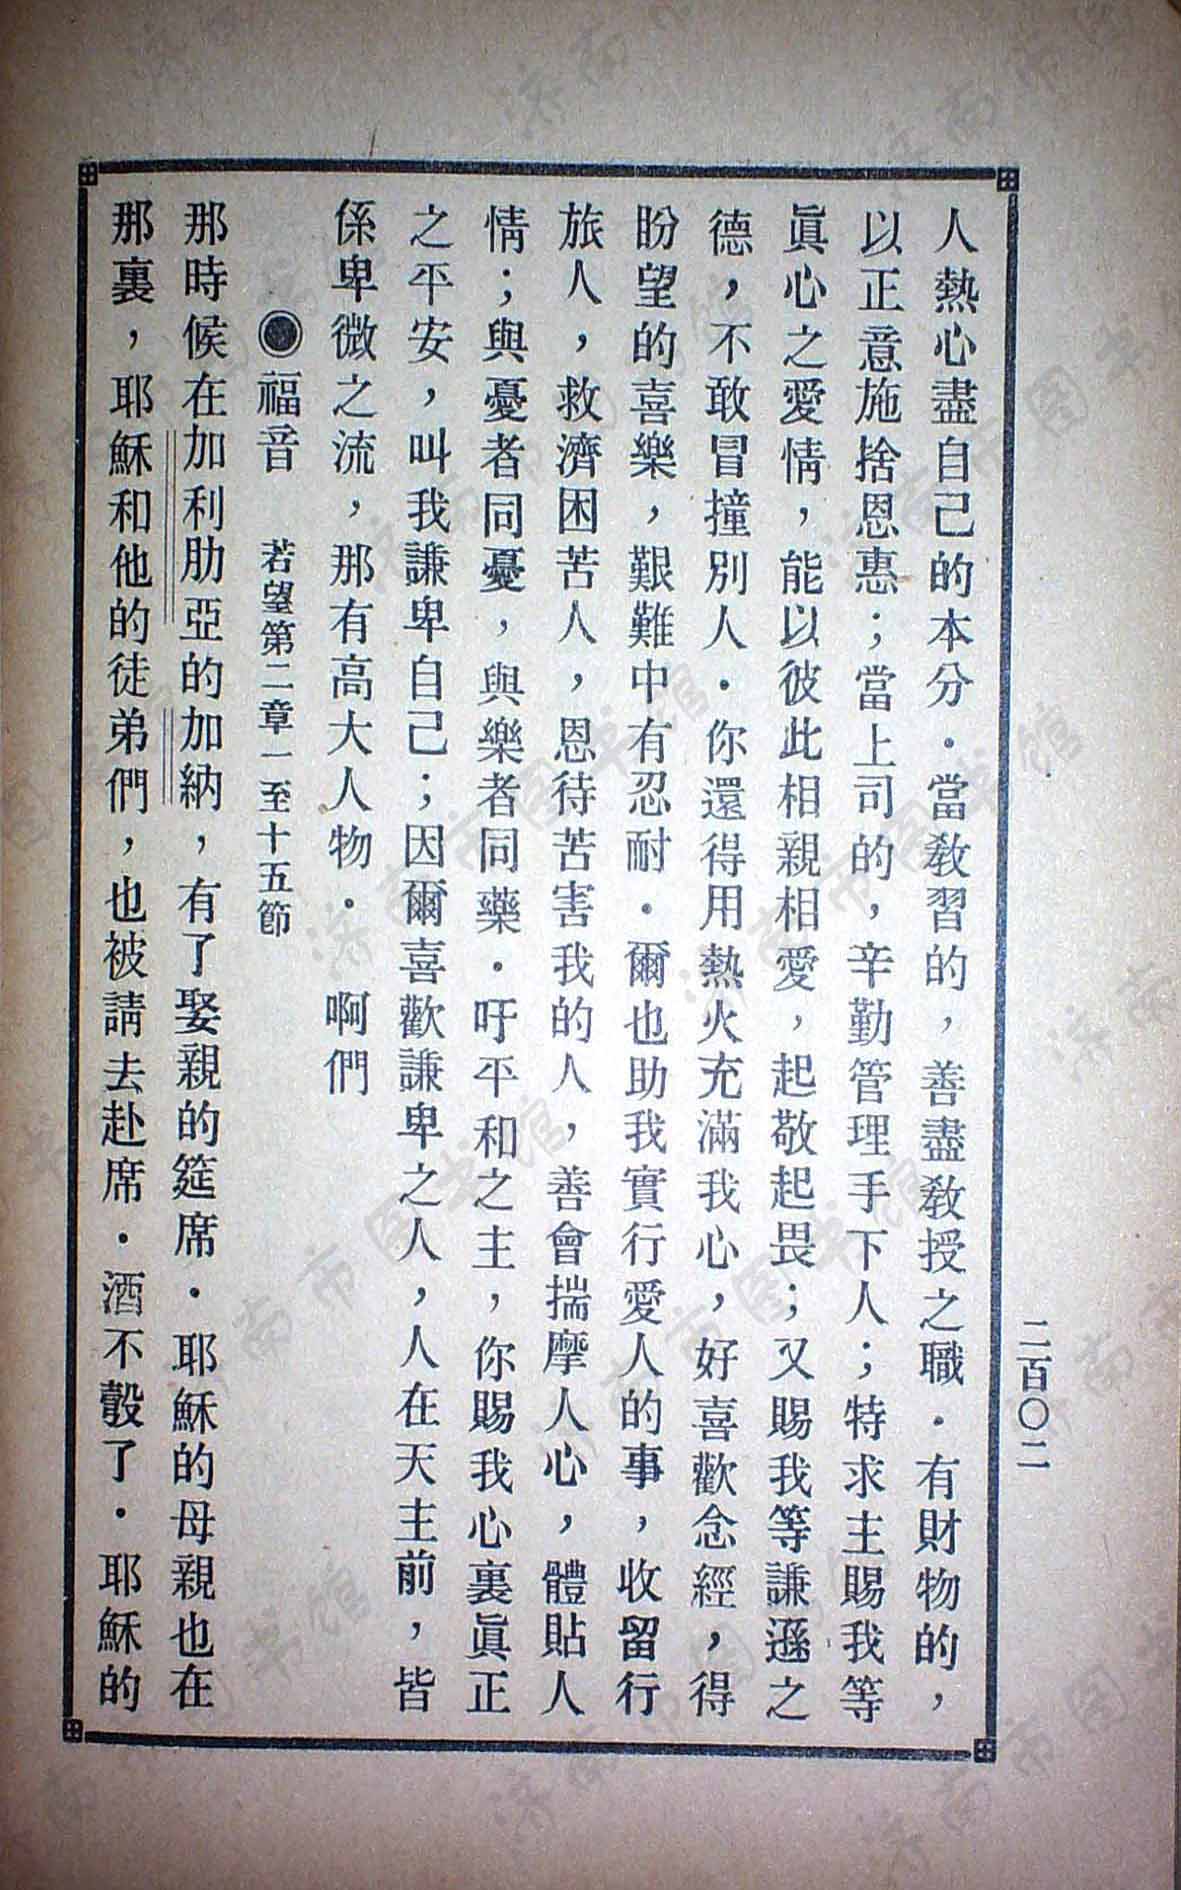 二百〇二
人熱心盡自己的本分．當教習的，善盡教授之職．有財物的，
以正意施捨恩惠；當上司的，辛勤管理手下人；特求主賜我等
眞心之愛情，能以彼此相親相愛，起敬起畏；又賜我等謙遜之
德，不敢冒撞別人．你還得用熱火充滿我心，好喜歡念經，得
盼望的喜樂，艱難中有忍耐．爾也助我實行愛人的事，收留行
旅人，救濟困苦人，恩待苦害我的人，善會揣摩人心，體貼人
情；與憂者同憂，與樂者同藥．吁平和之主，你賜我心裏眞正
之平安，叫我謙卑自己；因爾喜歡謙卑之人，人在天主前，皆
係卑微之流，那有高大人物．啊們
◉福音 若望第二章一至十五節
那時候在加利肋亞的加納，有了娶親的筵席．耶穌的母親也在
那裏，耶穌和他的徒弟們，也被請去赴席．酒不彀了．耶穌的
济南市图书馆